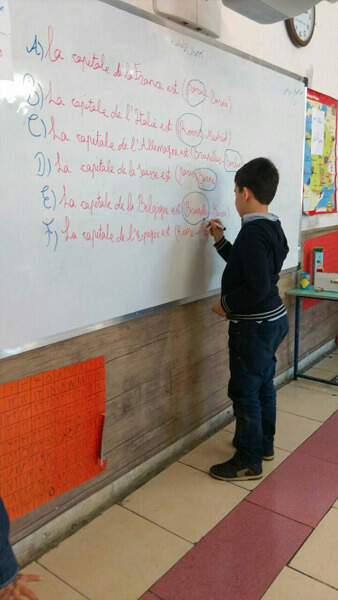 A) La capitale de la France est (Paris - Berne)
B) La capitale de l'Italie est (Rome - Madrid)
C) La capitale de l'Allemagne est (Bruxelles - Berlin)
D) La capitale de la suisse est (Paris - Berne)
E) La capitale de la Belgique est (Bruxelles - Rome)
F) La capitale de l'espagne est (Rome -